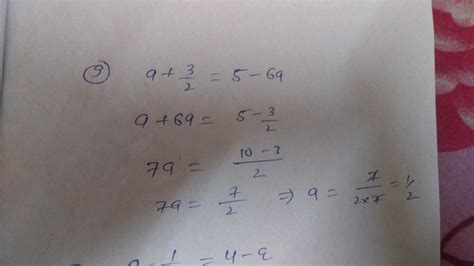 9 a + 3/2 = 5 - 6a
a + 6a = 5 - 3/2
7a = 10 - 3/2
7a = 7/2 ⇒ a = 7/2×7 = 1/2
1 = 4 - a